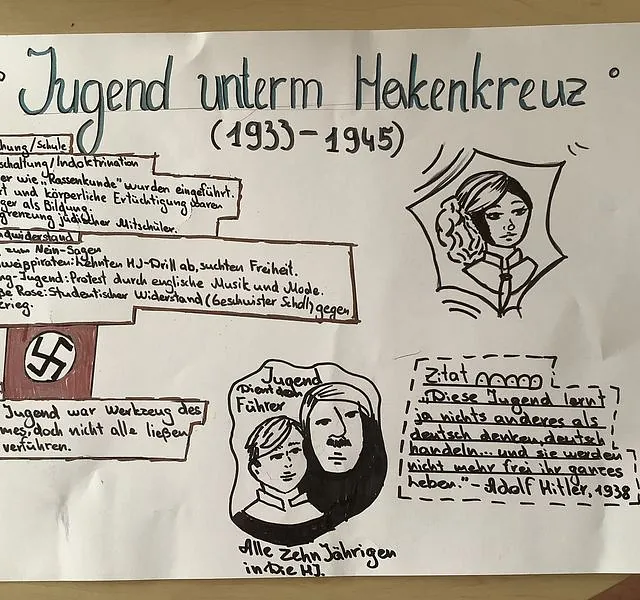 Jugend unterm Hakenkreuz
(1933-1945)
hung/Schule
schaltung/Indoktrination
er wie „Rassenkunde" wurden eingeführt.
rt und körperliche Ertüchtigung waren
ger als Bildung.
grenzung jüdischer Mitschüler.
ndwiderstand
zum Nein-Sagen
lweißpiraten: lehnten HJ-Drill ab, suchten Freiheit.
ng-Jugend: Protest durch englische Musik und Mode.
ße Rose: Studentischer Widerstand (Geschwister Scholl) gegen
krieg.
Jugend war Werkzeug des
mes, doch nicht alle ließen
verführen.
Jugend
Dient dem
Führer
Alle Zehn Jährigen
in Die HJ.
Zitat
„Diese Jugend lernt
ja nichts anderes als
deutsch denken, deutsch
handeln... und sie werden
nicht mehr frei ihr ganzes
Leben." - Adolf Hitler, 1938